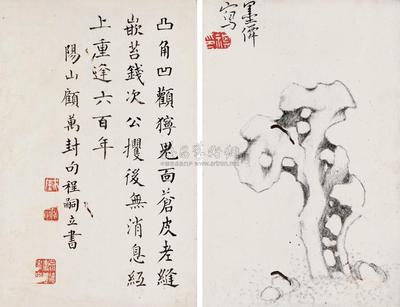 凸角凹顴獰鬼面蒼皮老縫
嵌苔錢次公攫後無消息紙
上重逢六百年
陽山顧萬封句程嗣立書
墨
寫